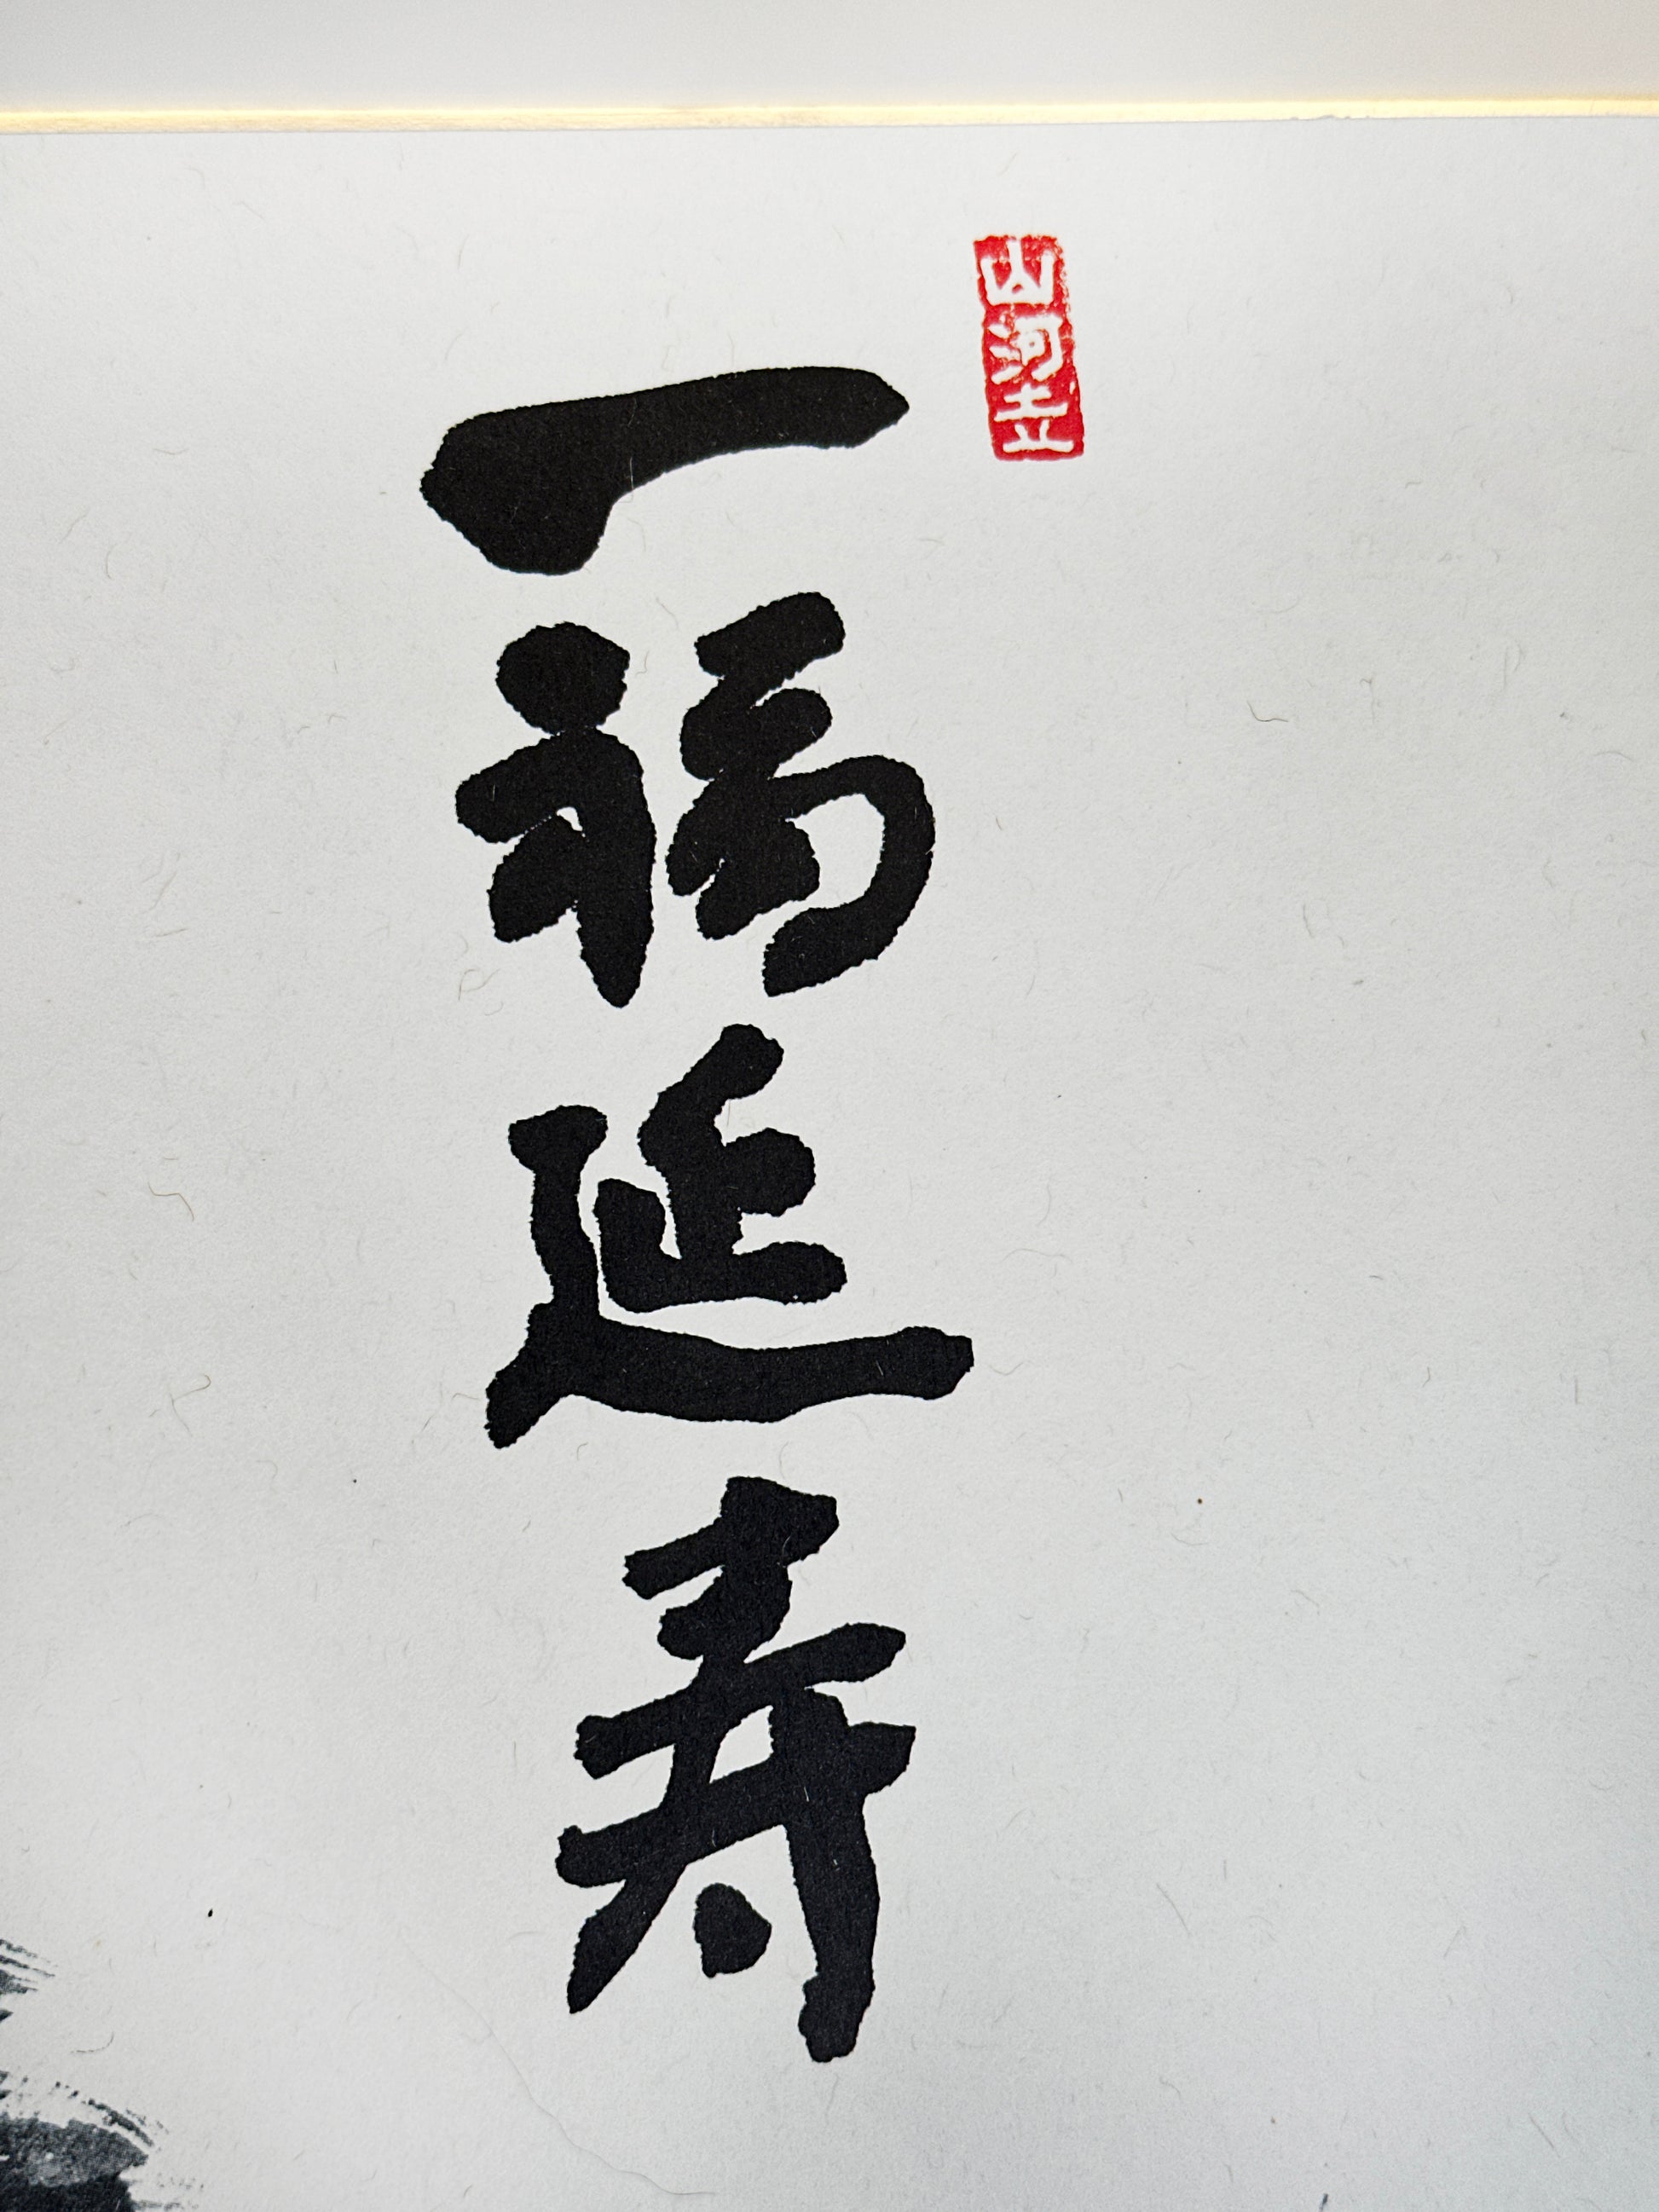 山河土立
一福延寿